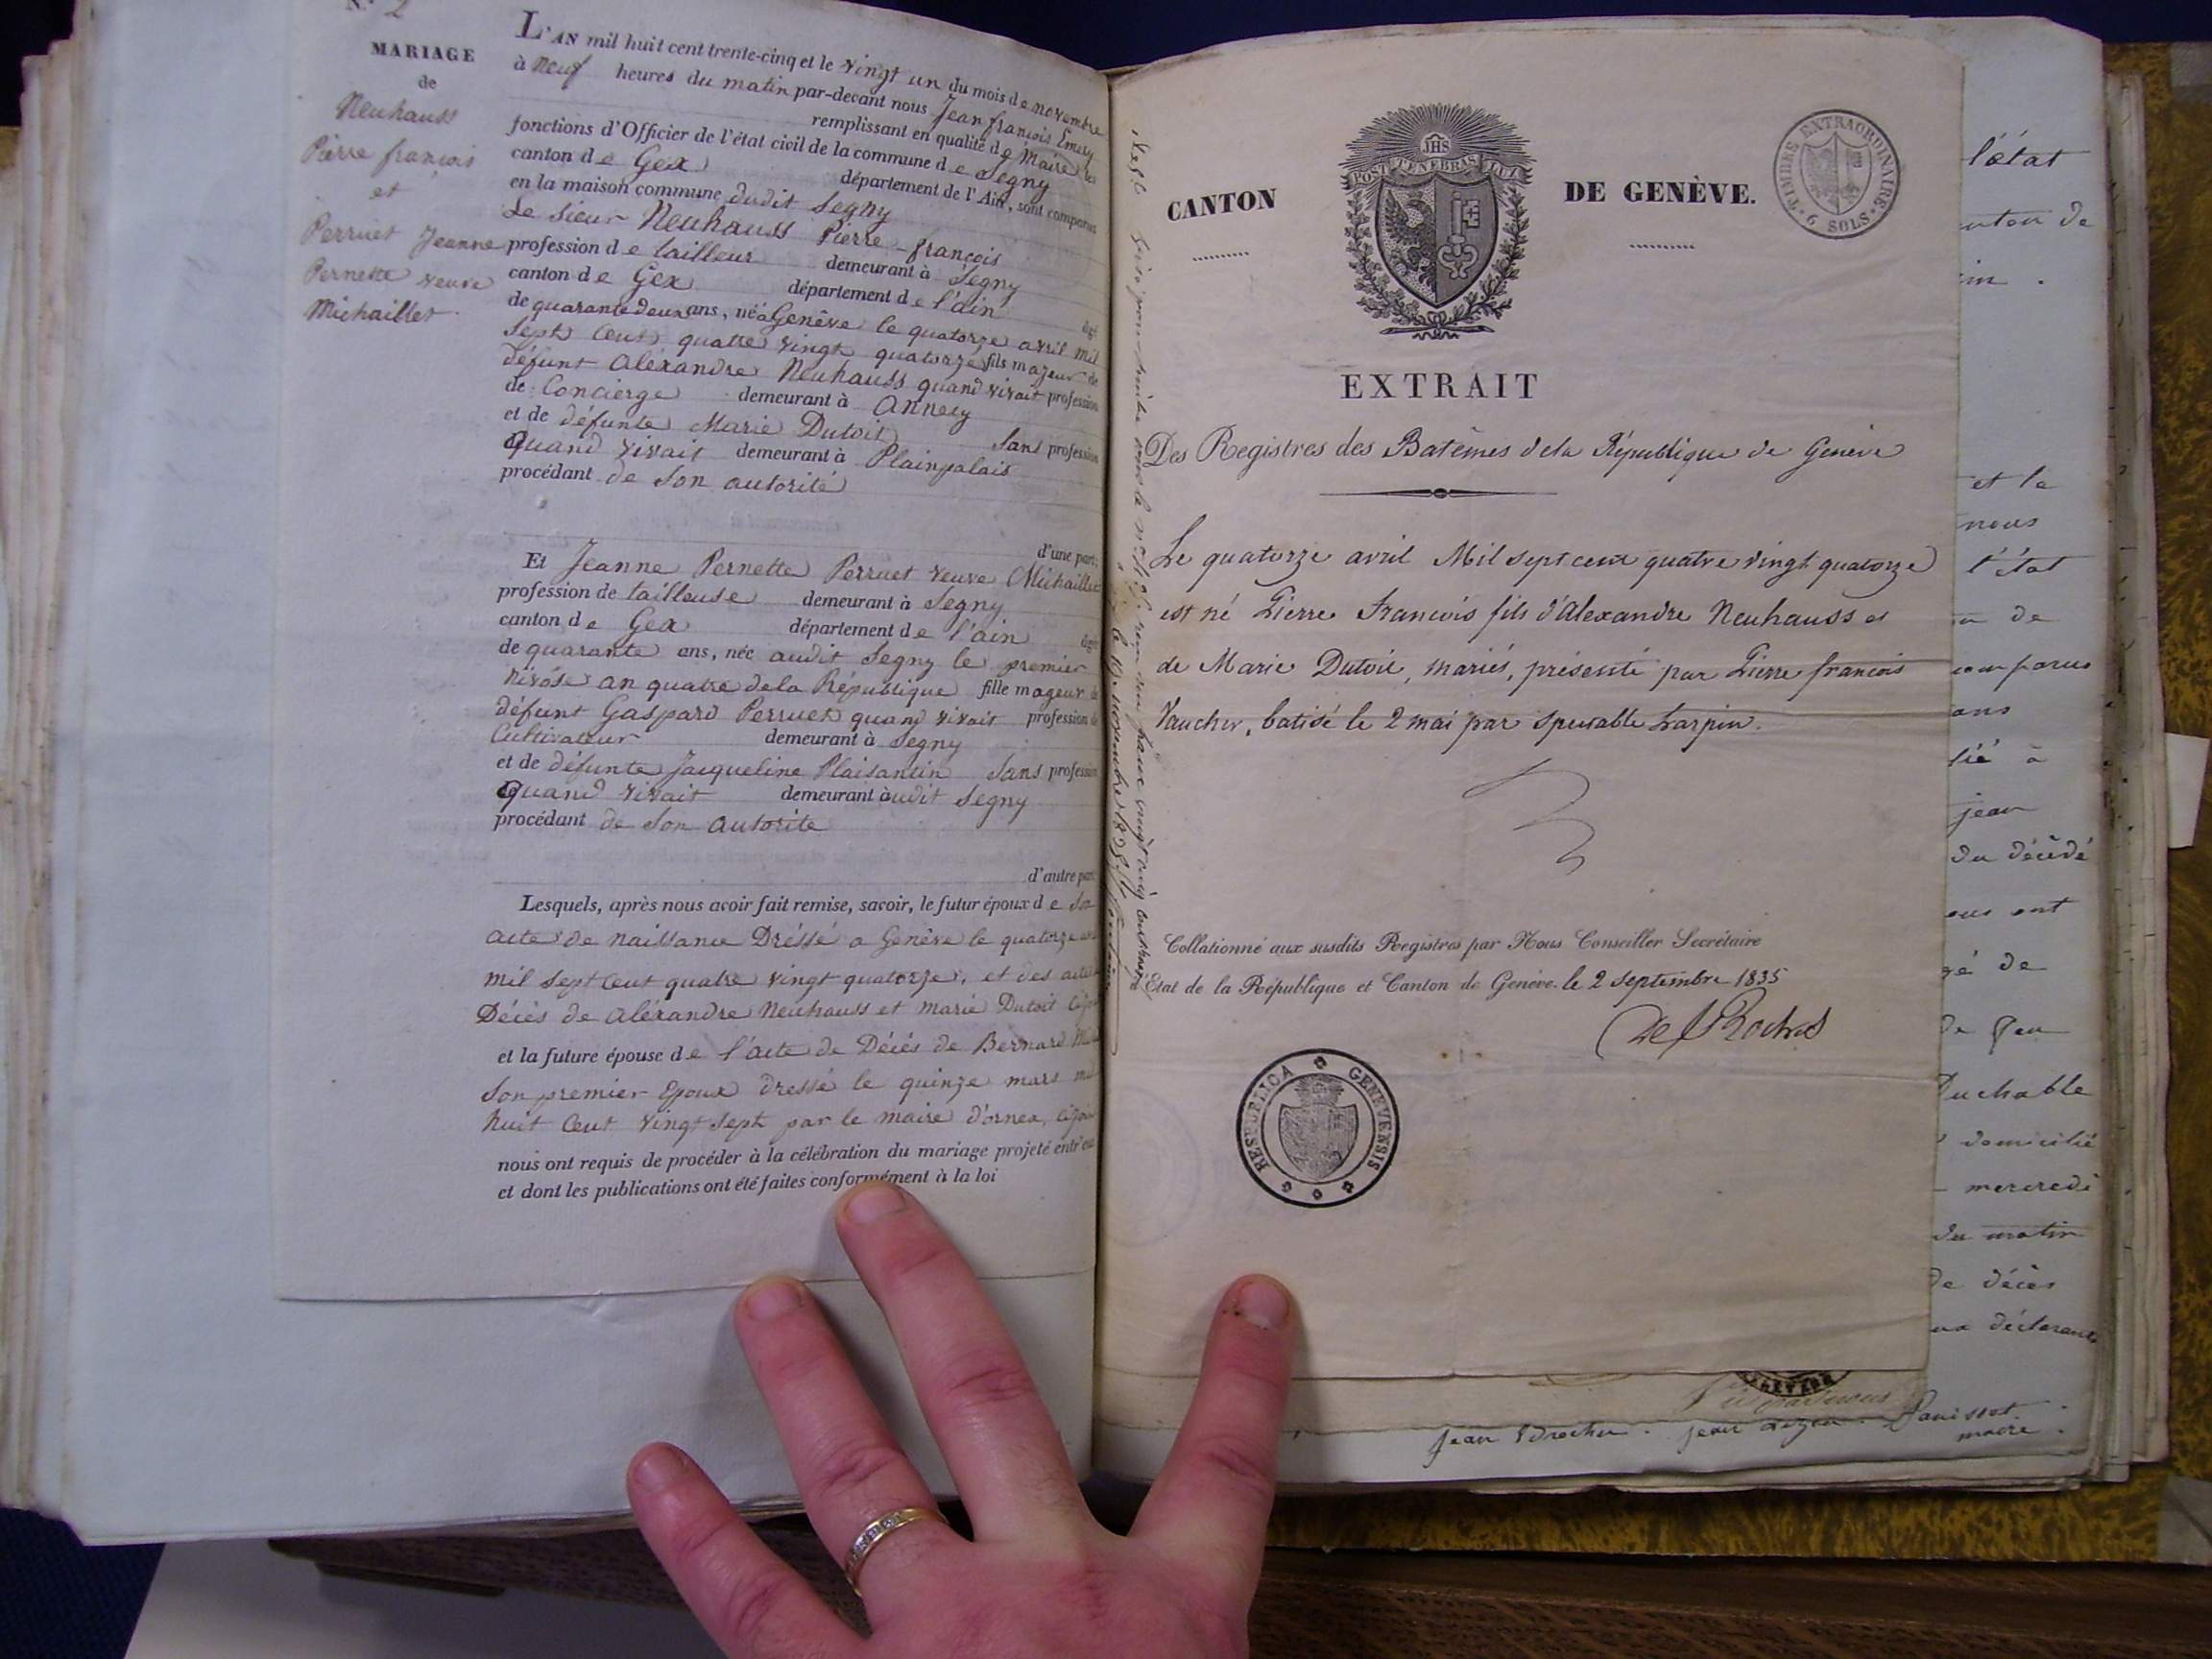 N.° 2
MARIAGE
de
Neuhauss
Pierre françois
et
Perruet Jeanne
Pernette veuve
Michaillet.
L'AN mil huit cent trente-cinq et le vingt un du mois de novembre
à neuf heures du matin par-devant nous Jean françois Emery
remplissant en qualité de Maire les
fonctions d'Officier de l'état civil de la commune de Segny
canton de Gex département de l'Ain, sont comparus
en la maison commune dudit Segny
Le Sieur Neuhauss Pierre françois
profession de tailleur demeurant à Segny
canton de Gex département de l'ain âgé
de quarante deux ans, né à Genêve le quatorze avril mil
sept cent quatre vingt quatorze fils majeur de
défunt Aléxandre Neuhauss quand vivait profession
de Concierge demeurant à Annecy
et de défunte Marie Dutoit Sans profession
Quand vivait demeurant à Plainpalais
procédant de Son autorité
d'une part;
Et Jeanne Pernette Perruet veuve Michaillet
profession de tailleuse demeurant à Segny
canton de Gex département de l'ain âgée
de quarante ans, née audit Segny le premier
nivôse an quatre de la République fille mageur de
défunt Gaspard Perruet quand vivait profession de
Cultivateur demeurant à Segny
et de défunte Jacqueline Plaisantin Sans profession
Quand vivait demeurant audit Segny
procédant de Son autorité
d'autre part
Lesquels, après nous avoir fait remise, savoir, le futur époux de Son
acte de naissance Dréssé a Genêve le quatorze
mil sept cent quatre vingt quatorze, et des actes
Décès de aléxandre Neuhauss et marie Dutoit
et la future épouse de l'acte de Décès de Bernard
Son premier Epoux dressé le quinze mars mil
huit Cent vingt Sept par le maire d'ornex,
nous ont requis de procéder à la célébration du mariage projeté entr'eux
et dont les publications ont été faites conformément à la loi
CANTON DE GENÈVE.
JHS
POST TENEBRAS LUX
TIMBRE EXTRAORDINAIRE
6 SOLS
EXTRAIT
Des Registres des Batêmes de la République de Genève
Le quatorze avril Mil sept cent quatre vingt quatorze
est né Pierre francois fils d'Alexandre Neuhauss et
de Marie Dutoit, mariés, présenté par Pierre francois
Vaucher, batisé le 2 mai par spectable
Collationné aux susdits Registres par Nous Conseiller Secrétaire
Etat de la République et Canton de Genève. le 2 septembre 1835
RESPUBLICA GENEVENSIS
l'état
canton de
et le
nous
l'état
de
comparus
ans
à
jean
du décédé
nous ont
de
de feu
Duchable
domicilié
mercredi
du matin
de décès
déclarants
Jean
maire.